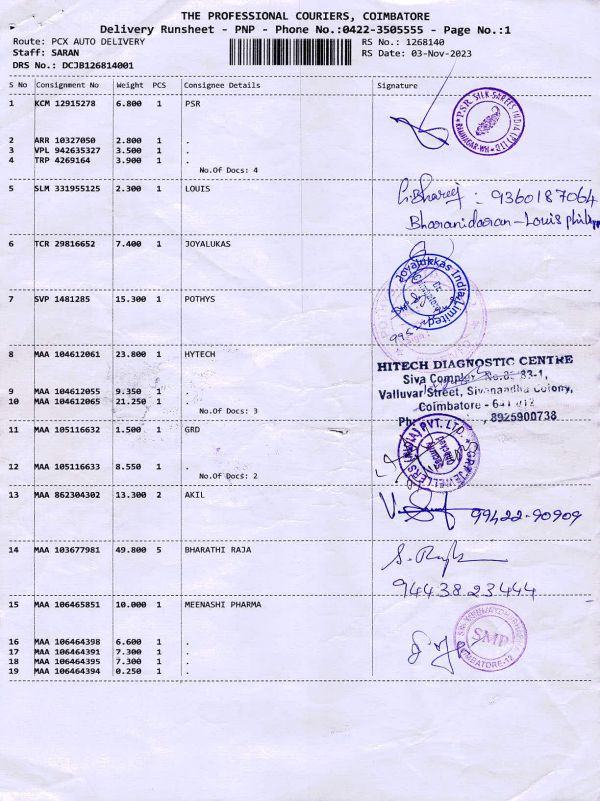 THE PROFESSIONAL COURIERS, COIMBATORE
Delivery Runsheet - PNP - Phone No.:0422-3505555 - Page No.:1
Route: PCX AUTO DELIVERY RS No.: 1268140
Staff: SARAN RS Date: 03-Nov-2023
DRS No.: DCJB126814001
S No Consignment No Weight PCS Consignee Details Signature
1 KCM 12915278 6.800 1 PSR
PSR SILK SAREES INDIA (P) LTD
2 ARR 10327050 2.800 1 .
3 VPL 942635327 3.500 1 .
4 TRP 4269164 3.900 1 .
No.Of Docs: 4
5 SLM 331955125 2.300 1 LOUIS
: 9360187064
Bharanidaran - Louis
6 TCR 29816652 7.400 1 JOYALUKAS
Joyalukkas India Limited
7 SVP 1481285 15.300 1 POTHYS
8 MAA 104612061 23.800 1 HYTECH
HITECH DIAGNOSTIC CENTRE
Siva Complex 83-1,
Valluvar Street, Sivanandha Colony,
9 MAA 104612055 9.350 1 .
10 MAA 104612065 21.250 1 .
Coimbatore - 641 012
No.Of Docs: 3
Ph , 8925900738
11 MAA 105116632 1.500 1 GRD
JEWELLERS (INDIA) PVT. LTD
12 MAA 105116633 8.550 1 .
No.Of Docs: 2
13 MAA 862304302 13.300 2 AKIL
99422-90909
14 MAA 103677981 49.800 5 BHARATHI RAJA
9443823444
15 MAA 106465851 10.000 1 MEENASHI PHARMA
SMP
COIMBATORE-12
16 MAA 106464398 6.600 1 .
17 MAA 106464391 7.300 1 .
18 MAA 106464395 7.300 1 .
19 MAA 106464394 0.250 1 .